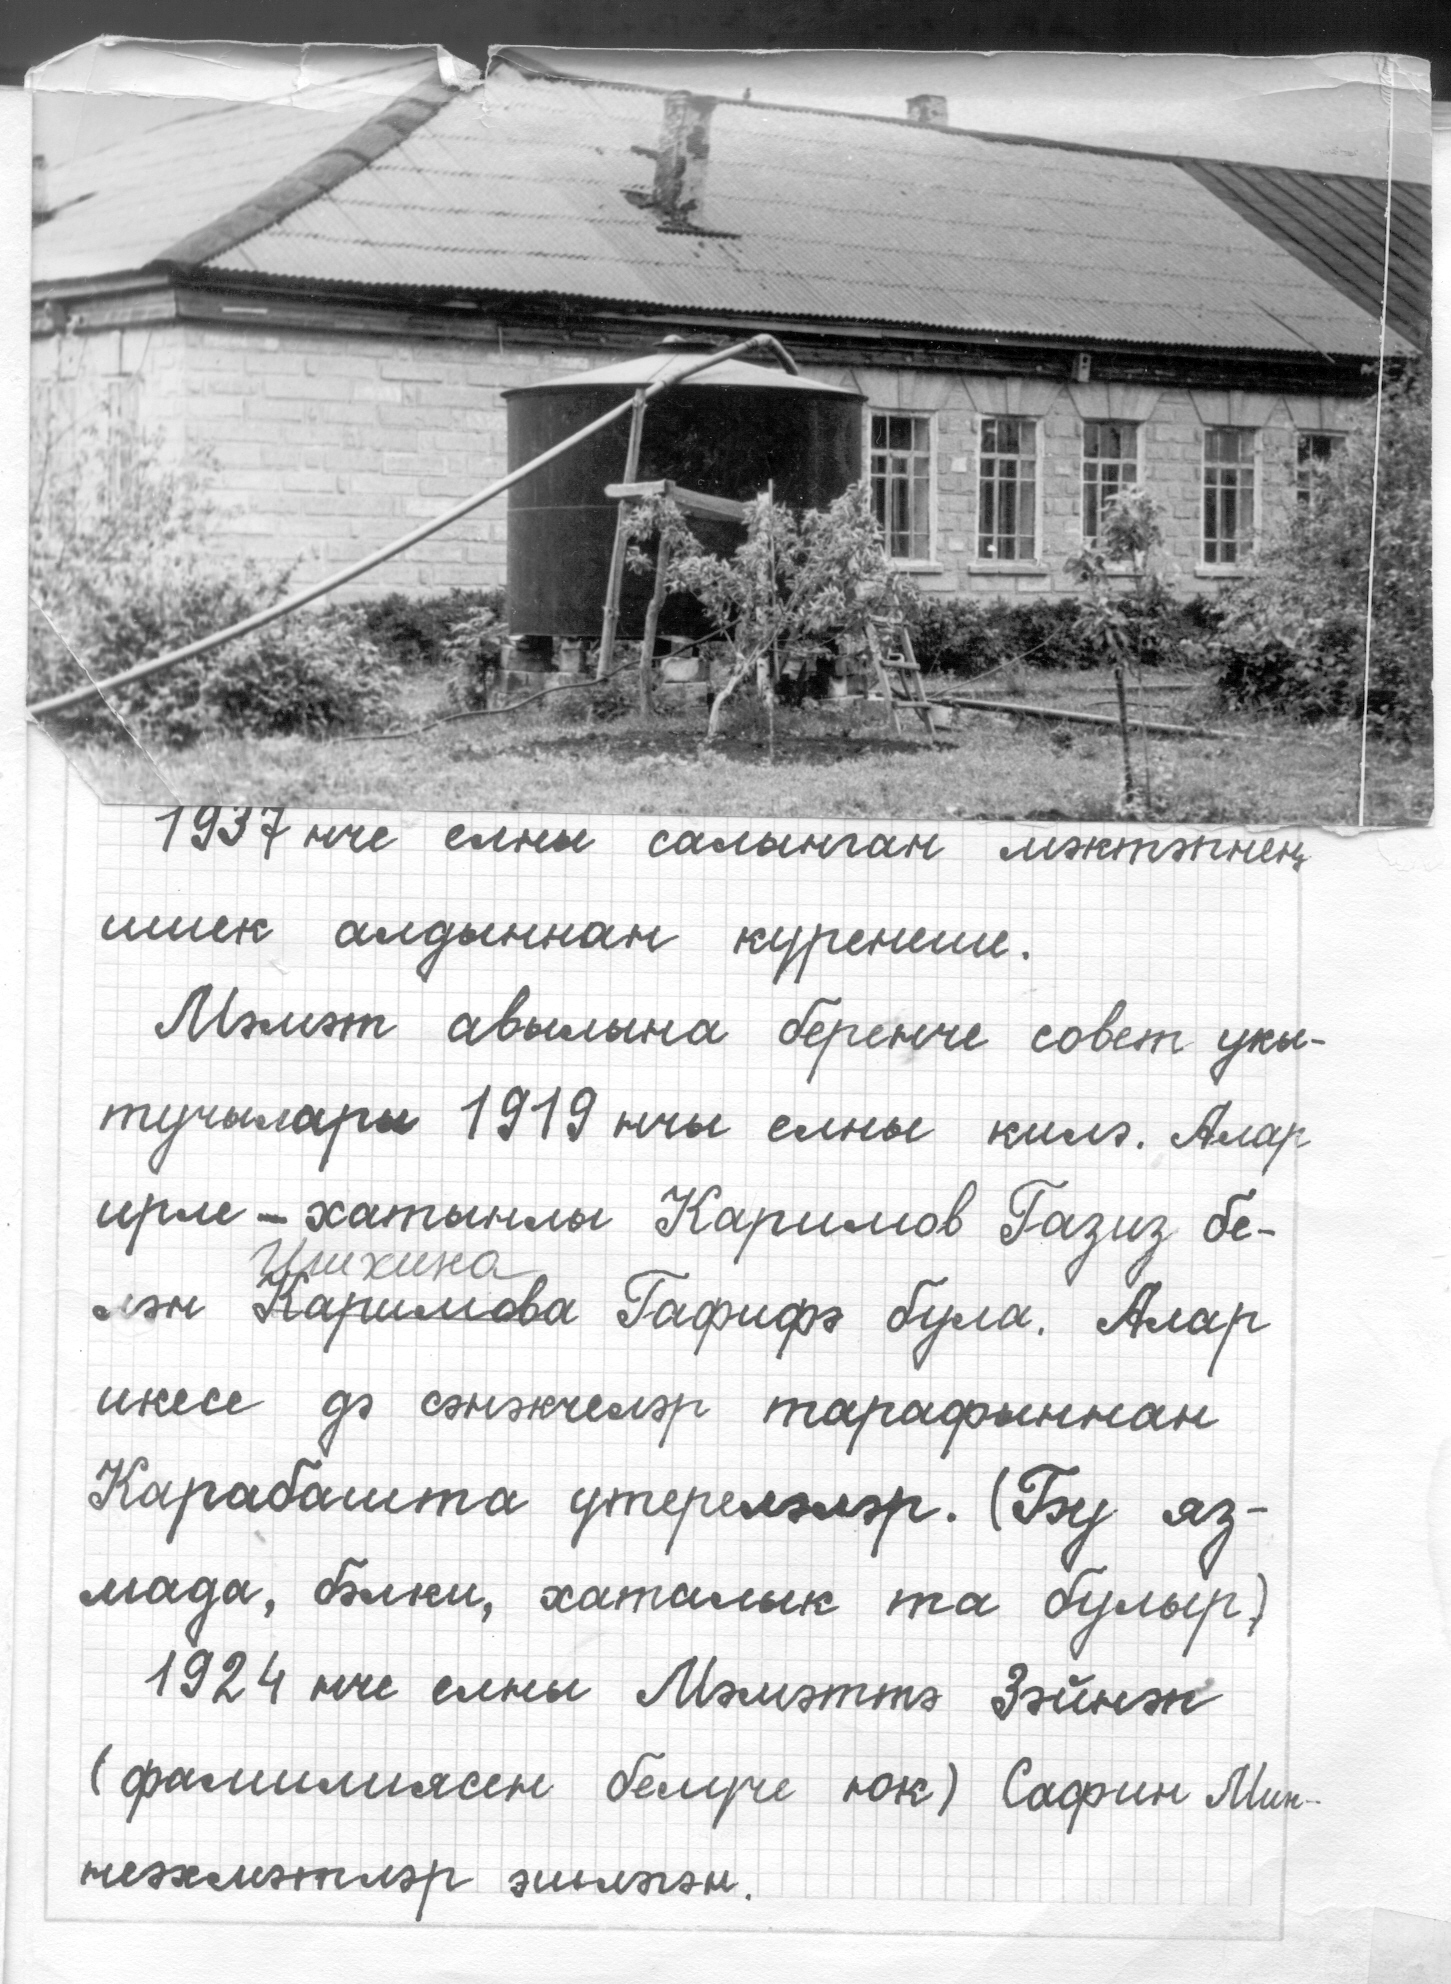 1937 нче елны салынган мәктәпнең
ишек алдыннан күренеше.
Мәмәт авылына беренче совет укы-
тучылары 1919 нчы елны килә. Алар
ирле-хатынлы Каримов Газиз бе-
Ишкина
лән Каримова Гафифә була. Алар
икесе дә сәнәкчеләр тарафыннан
Карабашта үтереләләр. (Бу яз-
мада, бәлки, хаталык та булыр)
1924 нче елны Мәмәттә Зәйнәп
(фамилиясен белүче юк) Сафин Мин-
неәхмәтләр эшләгән.